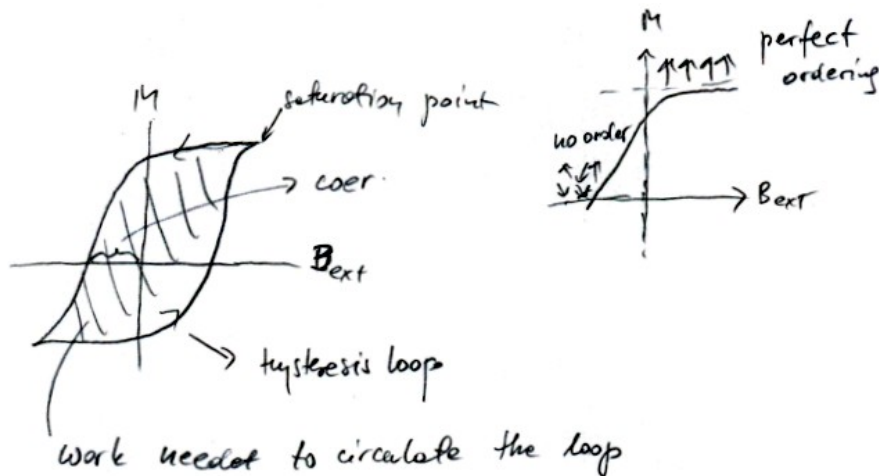 M
saturation point
coer.
Bext
hysteresis loop
work needed to circulate the loop
M
perfect
ordering
no order
Bext